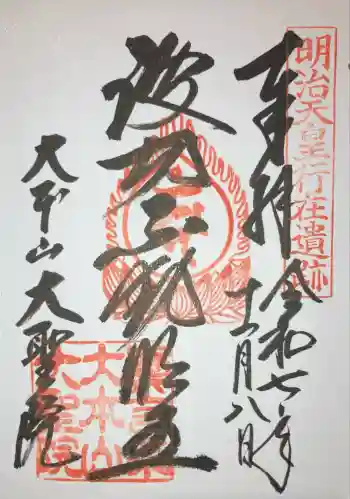 明治天皇行在遺跡
奉拝
令和七年
十一月八日
波切不動明王
大本山大聖院
大本山
大聖院